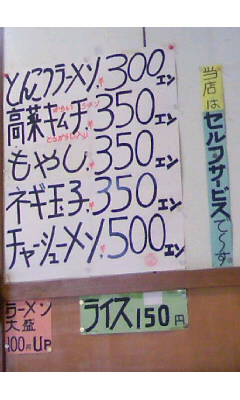 とんこつラーメン 300エン
高菜 キムチ 350エン
もやし 350エン
ネギ玉子 350エン
チャーシューメン 500エン
当店は
セルフサービスで〜す
ラーメン
大盛
100円UP
ライス150円